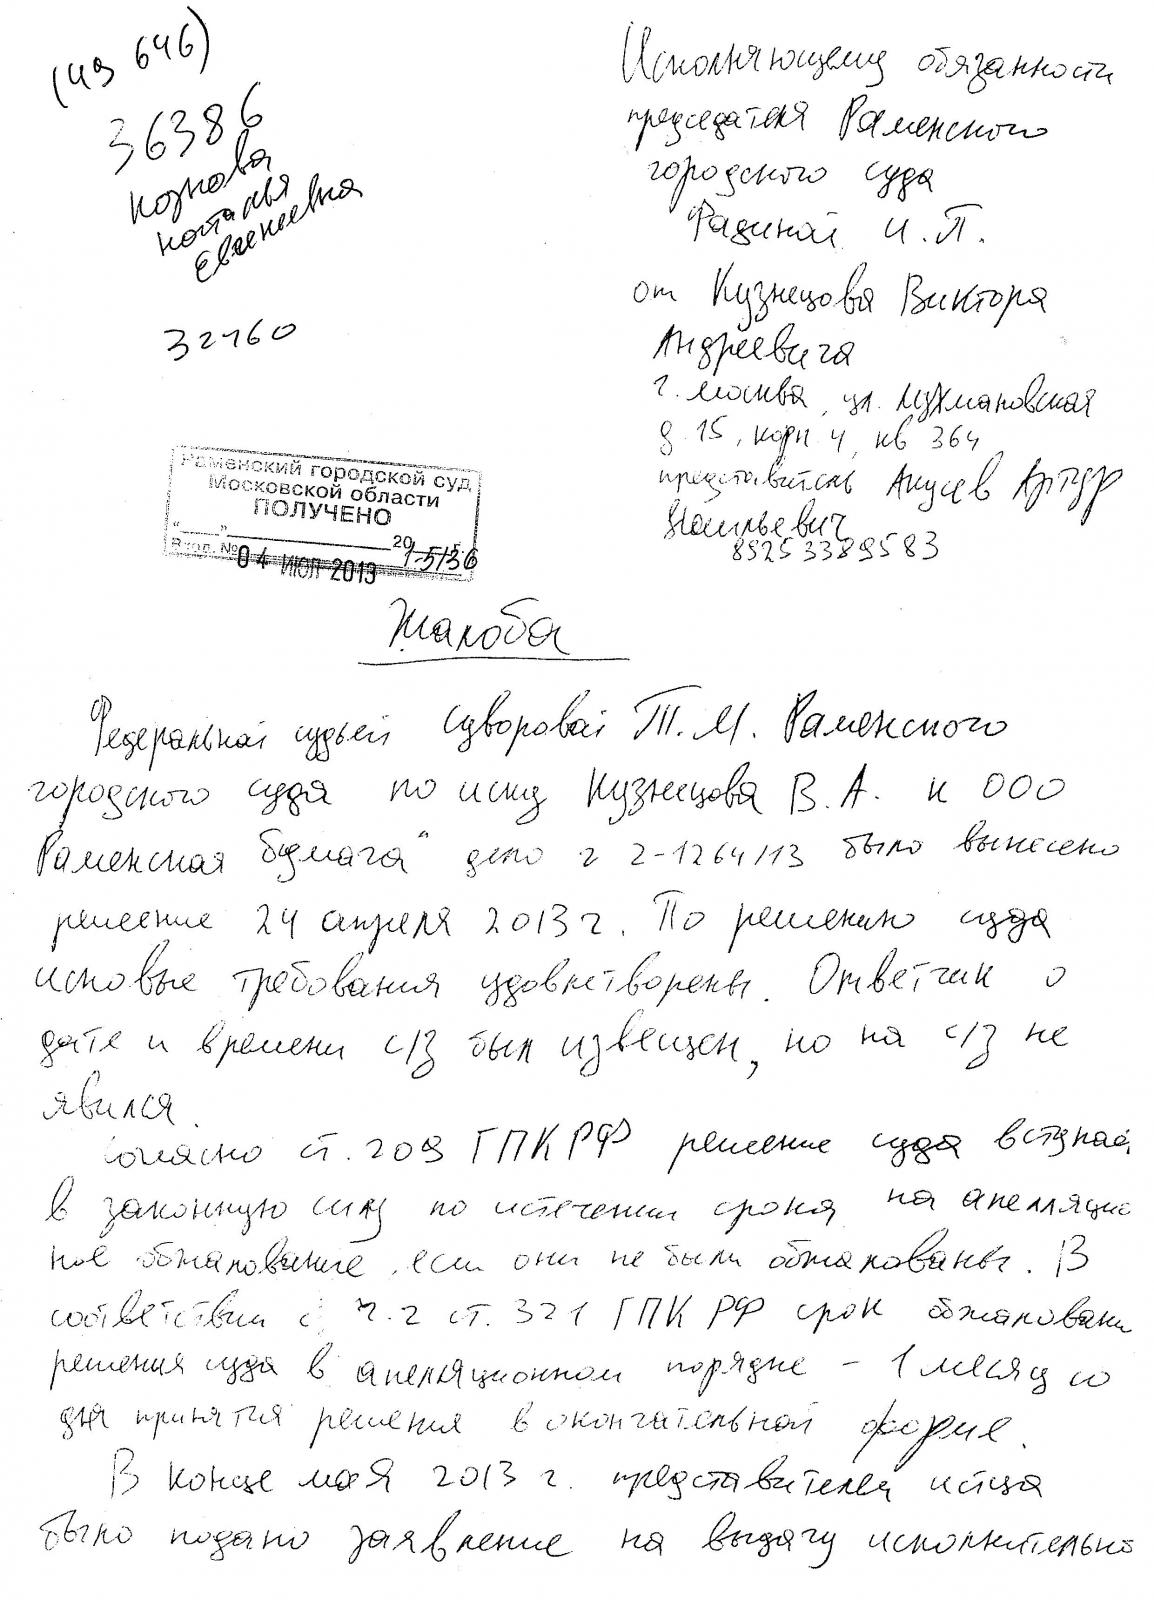 (49 646)
36386
Наталья
Евгеньевна
32160
Исполняющему обязанности
председателя Раменского
городского суда
Фадиной И. П.
от Кузнецова Виктора
Андреевича
г. Москва, ул.
д. 15, корп 4, кв 364
представитель Артур
Наильевич
89253389583
Раменский городской суд
Московской области
ПОЛУЧЕНО
"___" ______ 20
Вход. № 04 ИЮЛ 2013 1-5136
Жалоба
Федеральной судьей Суворовой Т. М. Раменского
городского суда по иску Кузнецова В. А. к ООО
Раменская бумага" дело 2-1264/13 было вынесено
решение 24 апреля 2013 г. По решению суда
исковые требования удовлетворены. Ответчик о
дате и времени с/з был извещен, но на с/з не
явился.
Согласно ст. 209 ГПК РФ решение суда вступае
в законную силу по истечении срока на апелляцио
ное обжалование, если они не были обжалованы. В
соответствии с ч. 2 ст. 321 ГПК РФ срок обжаловани
решения суда в апелляционном порядке - 1 месяц со
дня принятия решения в окончательной форме.
В конце мая 2013 г. представителем истца
было подано заявление на выдачу исполнительно